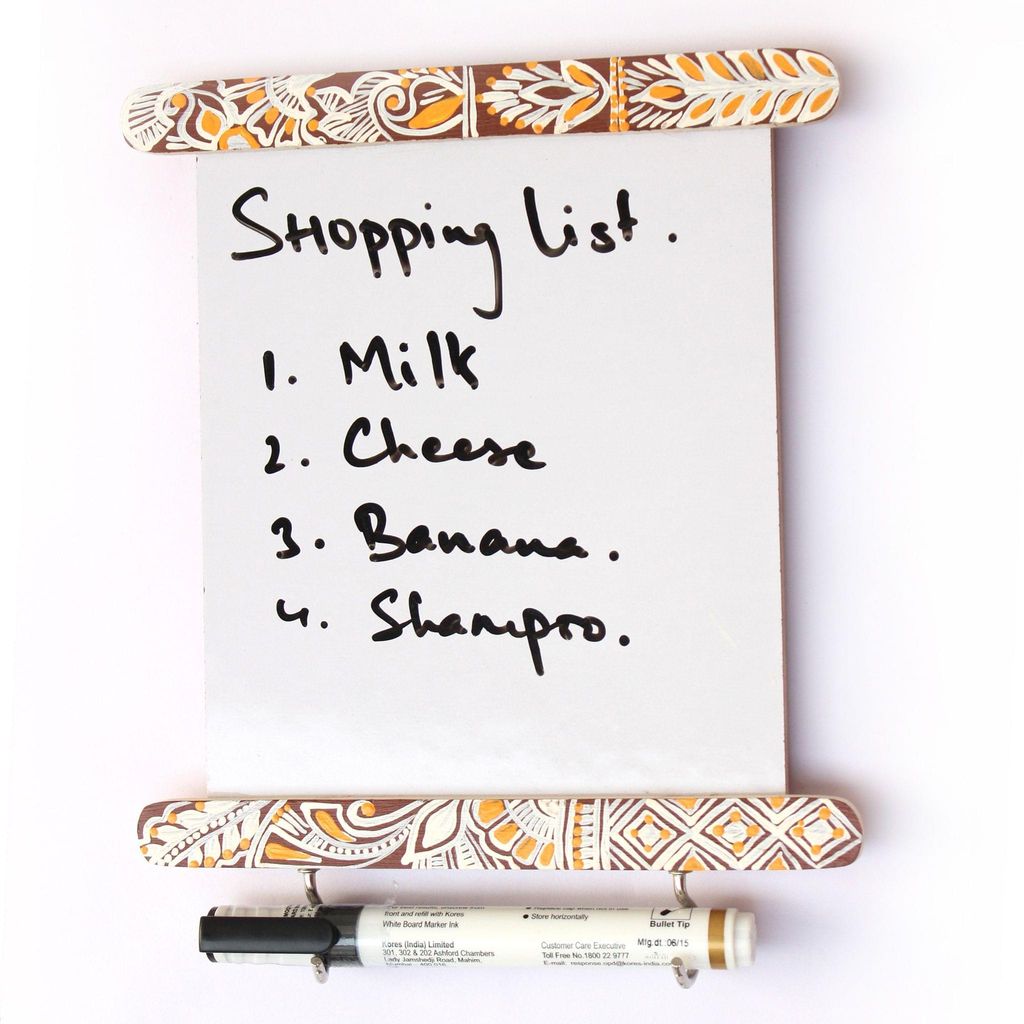 SHopping List.
1. Milk
2. Cheese
3. Banana.
4. Shampro.
front and refill with Kores
White Board Marker Ink
Kores (India) Limited
301, 302 & 202 Ashford Chambers
Lady Jamshedji Road, Mahim,
• Store horizontally
Customer Care Executive
Toll Free No.1800 22 9777
Bullet Tip
Mfg.dt.:06/15